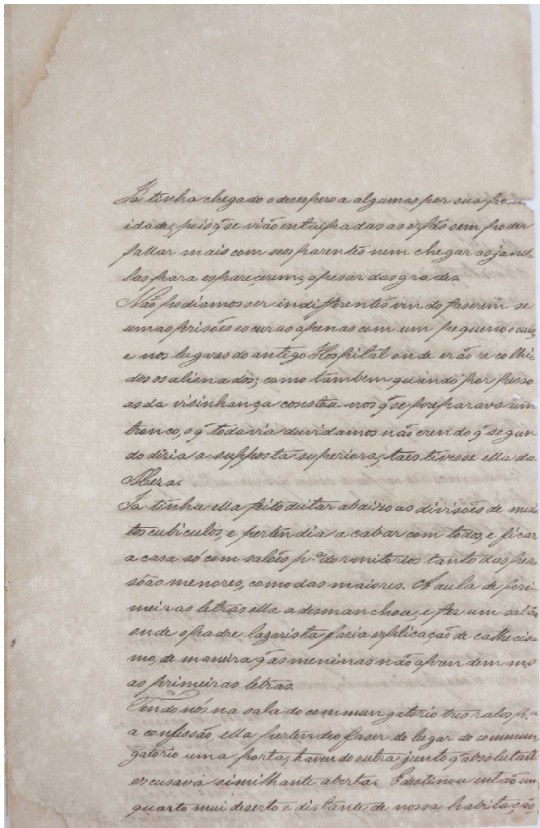 Ja tinha chegado o desespero a algumas por sua
idade, pois q̃ se vião entaipadas as orfãs sem poder
fallar mais com seos parentes nem chegar as janel-
las para espareçerem, apesar das grades.
Não podiamos ser indifferentes vendo faserem se
umas prisões escuras apenas com um pequeno oculo,
e nos lugares do antigo Hospital onde erão recolhi
dos os alienados; como tambem quando por pesso
as da visinhança constou-nos q̃ se preparava um
tronco, o q̃ todavia duvidamos não crendo q̃ segun
do diria a supposta superiora, taes tivesse ella da
Mera.
Ja tinha ella feito deitar abaixo as divisões de mui
tos cubiculos, e pertendia acabar com todos, e ficar
a casa só com salões p.ª dormitorios tanto das pes
sôas menores, como das maiores. A aula de pri
meiras letras ella a desmanchou, e fez um salão
onde o padre lazarista fasia explicação de cathecis-
mo, de maneira q̃ as meninas não aprendem
as primeiras letras.
Tendo nos na sala do commungatorio tres ralos p.ª
a confissão, ella pertendeo faser do lugar do commun
gatorio uma porta, havendo outra junto q̃ absolutamte
escusava similhante aberta. Destinou então um
quarto mui deserto e distante de nossa habitação,